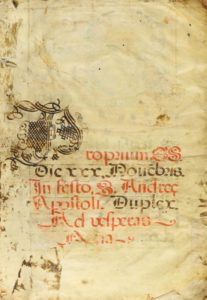 Proprium SS
Die xxx, Nouēbris.
In festo, S. Andreę
Apostoli. Duplex.
Ad vesperas